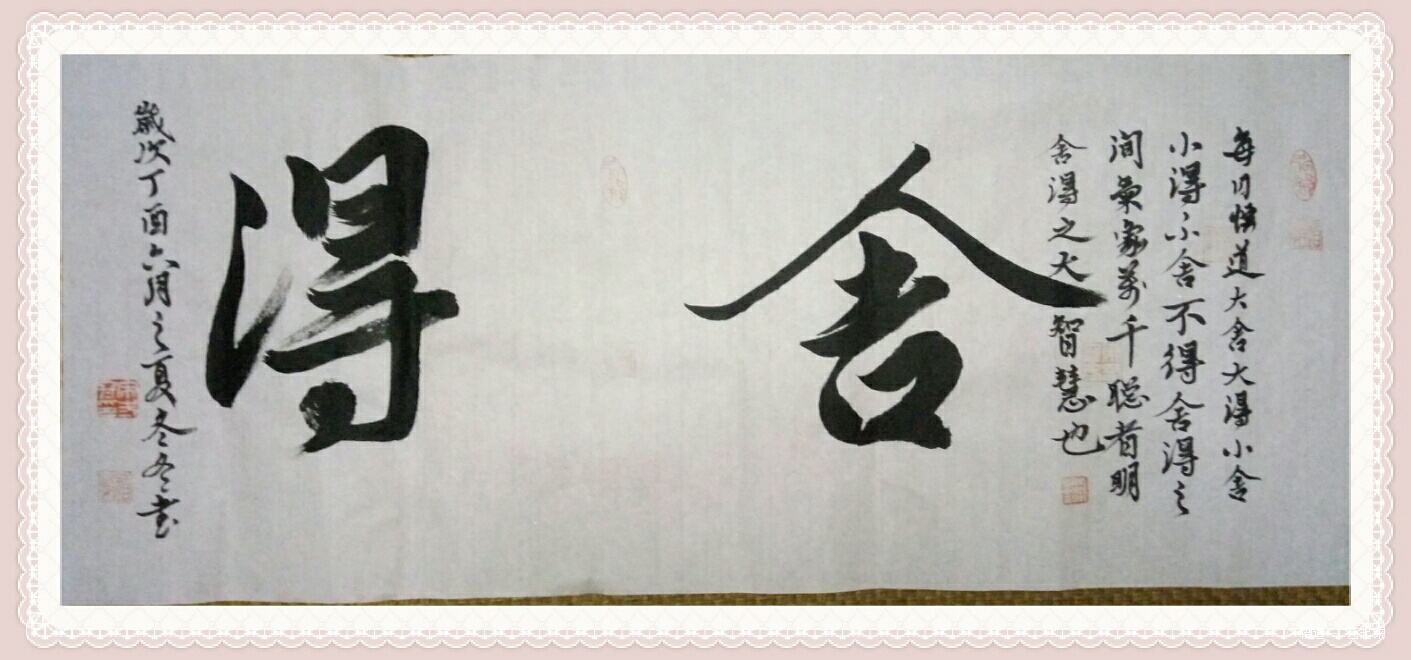 每日悟道大舍大得小舍
小得小舍不得舍得之
间气象万千聪者明
舍得之大智慧也
舍得
歲次丁酉六月之夏冬冬书